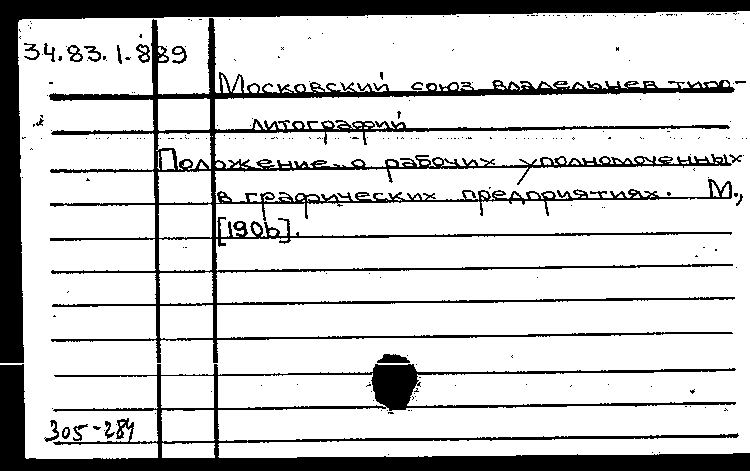 34.83.1.889
Московский союз владельцев типо-
литографий
Положение о рабочих уполномоченных
в графических предприятиях. М.,
[1906].
305-284